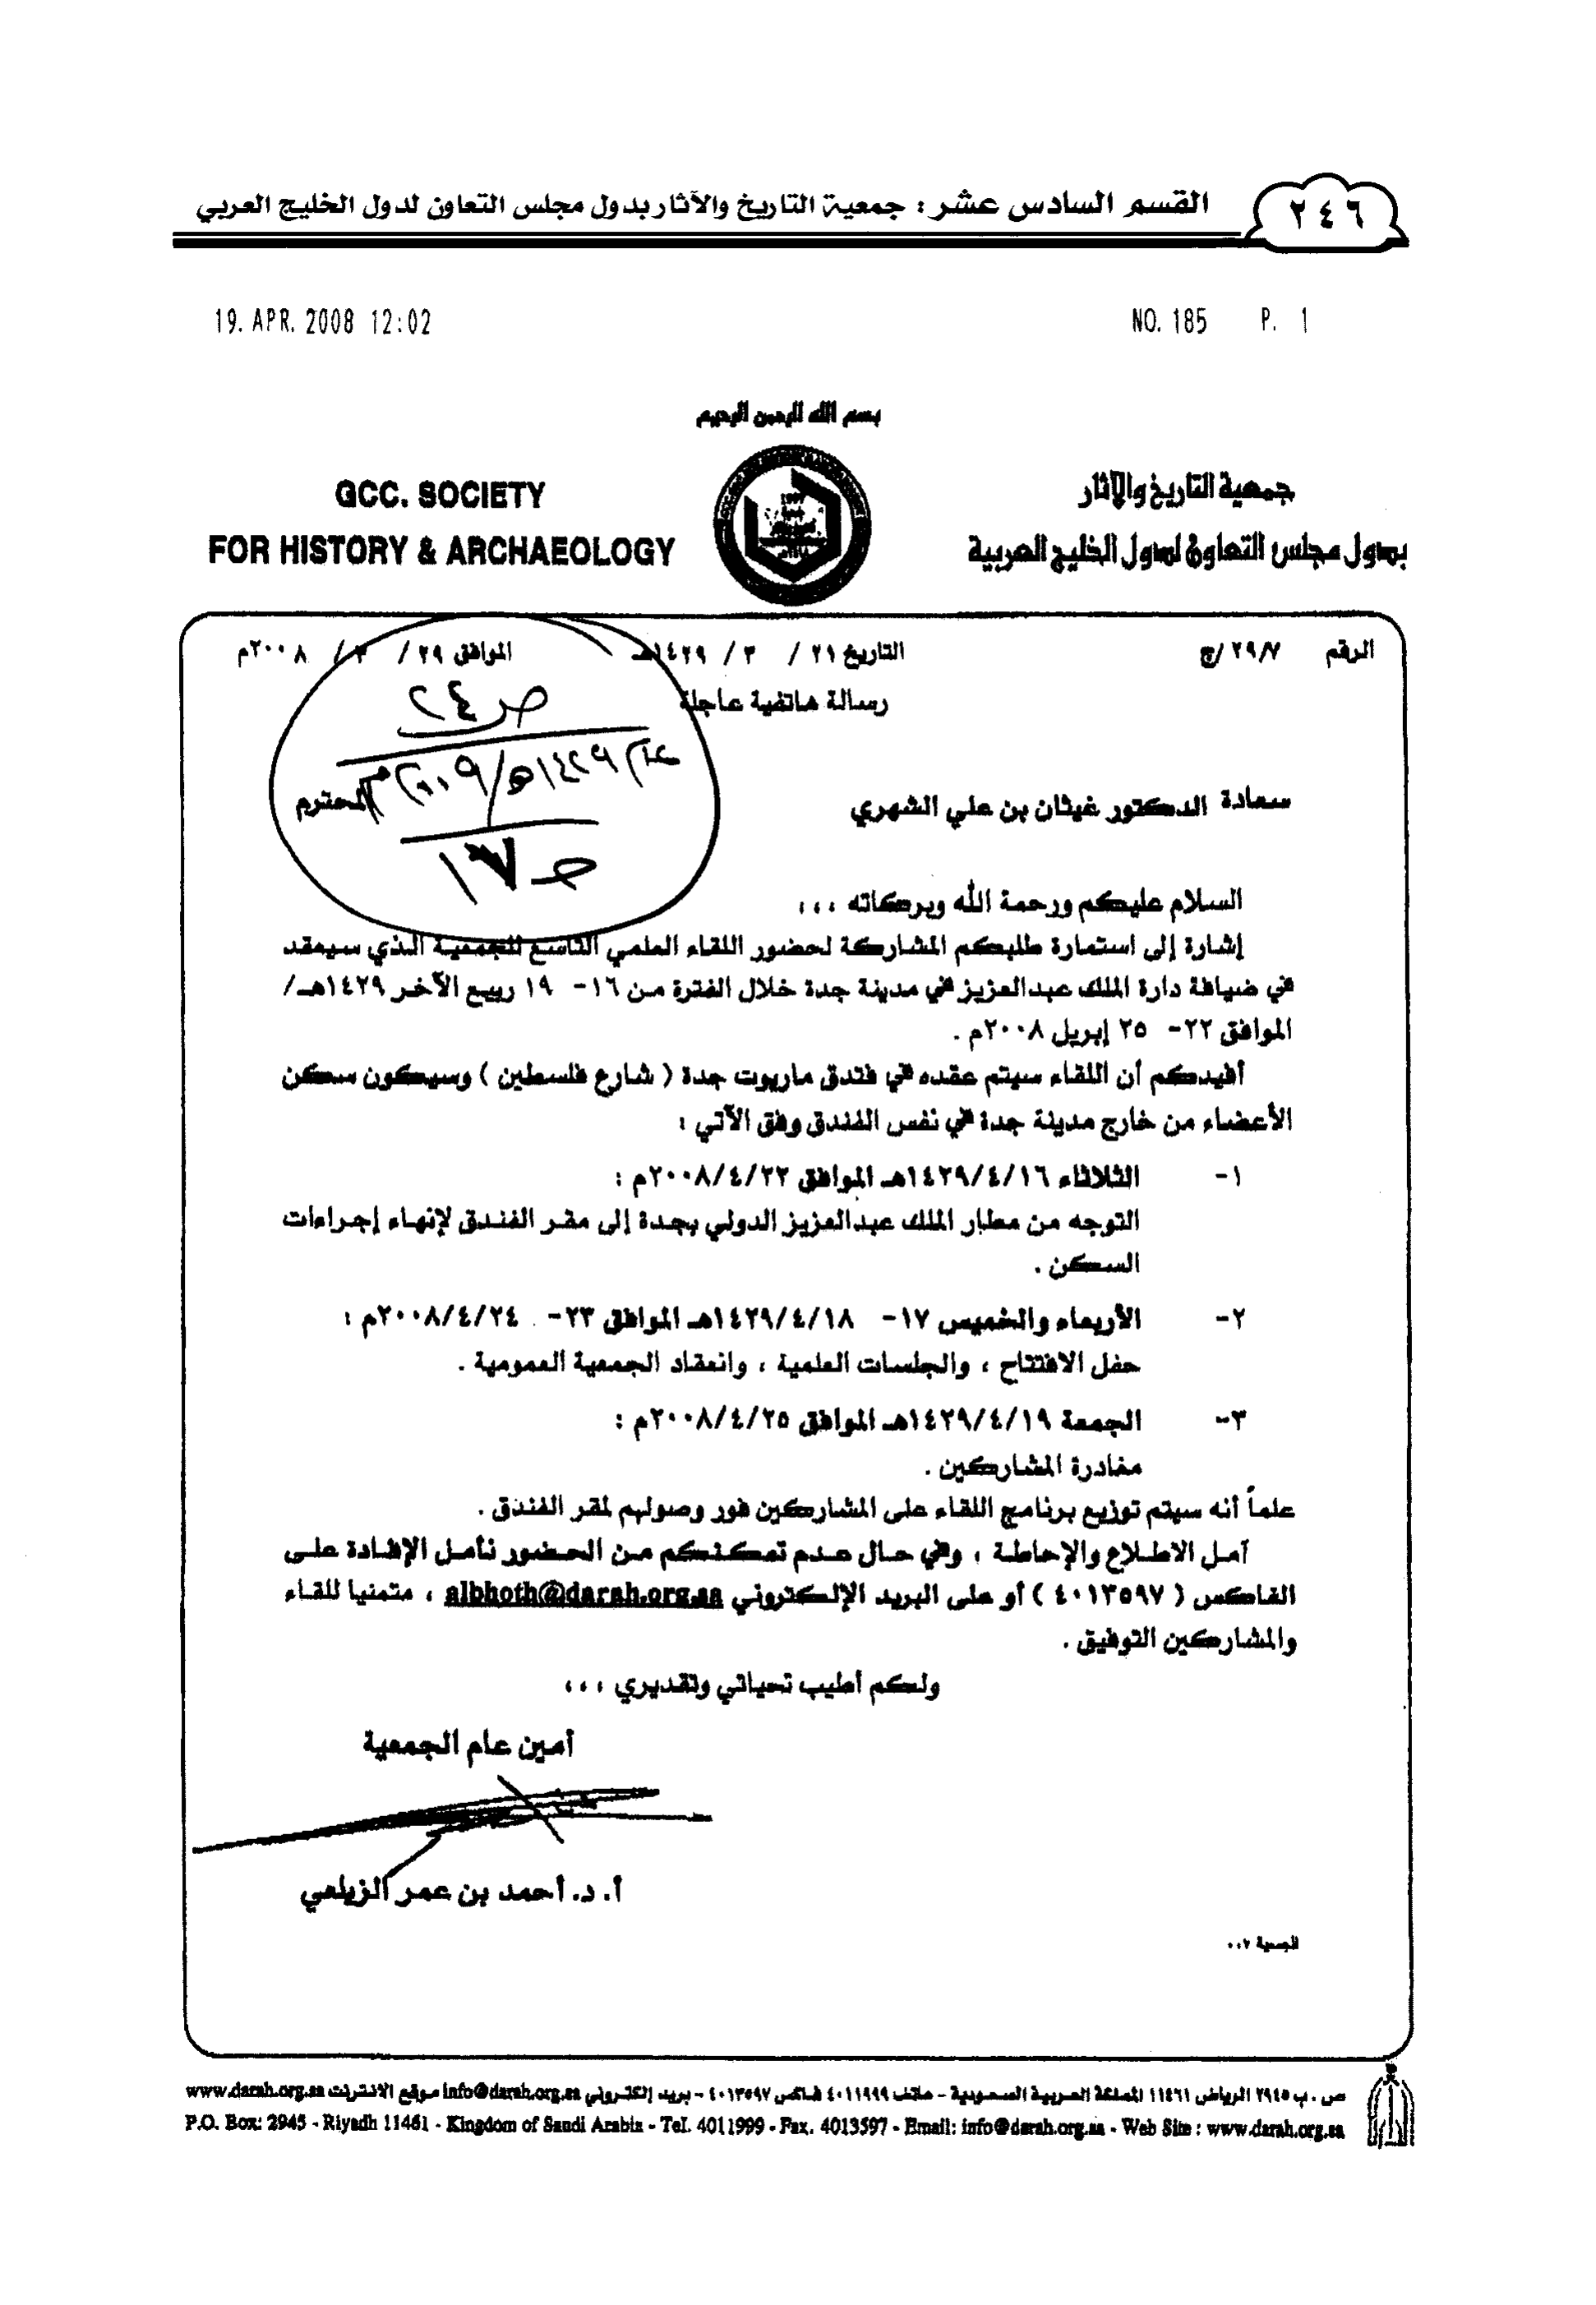 القسم السادس عشر : جمعية التاريخ والآثار بدول مجلس التعاون لدول الخليج العربي
٢٤٦
19. APR. 2008 12:02
NO. 185 P. 1
بسم الله الرحمن الرحيم
جمعية التاريخ والآثار
بدول مجلس التعاون لدول الخليج العربية
GCC. SOCIETY
FOR HISTORY & ARCHAEOLOGY
الرقم ٢٩/٧/ج
التاريخ ٢١ / ٣ / ١٤٢٩هـ
الموافق ٢٩ / ٣ / ٢٠٠٨م
رسالة هاتفية عاجلة
ص ٢٤
سعادة الدكتور غيثان بن علي الشهري المحترم
السلام عليكم ورحمة الله وبركاته ،،،
إشارة إلى استمارة طلبكم المشاركة لحضور اللقاء العلمي التاسع للجمعية الذي سيعقد
في ضيافة دارة الملك عبدالعزيز في مدينة جدة خلال الفترة من ١٦- ١٩ ربيع الآخر ١٤٢٩هـ/
الموافق ٢٢- ٢٥ إبريل ٢٠٠٨م .
أفيدكم أن اللقاء سيتم عقده في فندق ماريوت جدة ( شارع فلسطين ) وسيكون سكن
الأعضاء من خارج مدينة جدة في نفس الفندق وفق الآتي :
١- الثلاثاء ١٤٢٩/٤/١٦هـ الموافق ٢٠٠٨/٤/٢٢م :
التوجه من مطار الملك عبدالعزيز الدولي بجدة إلى مقر الفندق لإنهاء إجراءات
السكن .
٢- الأربعاء والخميس ١٧- ١٤٢٩/٤/١٨هـ الموافق ٢٣- ٢٠٠٨/٤/٢٤م :
حفل الافتتاح ، والجلسات العلمية ، وانعقاد الجمعية العمومية .
٣- الجمعة ١٤٢٩/٤/١٩هـ الموافق ٢٠٠٨/٤/٢٥م :
مغادرة المشاركين .
علماً أنه سيتم توزيع برنامج اللقاء على المشاركين فور وصولهم لمقر الفندق .
آمل الاطلاع والإحاطة ، وفي حال عدم تمكنكم من الحضور نأمل الإفادة على
الفاكس ( ٤٠١٣٥٩٧ ) أو على البريد الإلكتروني albhoth@darah.org.sa ، متمنيا للقاء
والمشاركين التوفيق .
ولكم أطيب تحياتي وتقديري ،،،
أمين عام الجمعية
أ. د. أحمد بن عمر الزيلعي
الجمعية ٠٠٧
ص . ب ٢٩٤٥ الرياض ١١٤٦١ المملكة العربية السعودية - هاتف ٤٠١١٩٩٩ فاكس ٤٠١٣٥٩٧ - بريد إلكتروني info@darah.org.sa موقع الانترنت www.darah.org.sa
P.O. Box: 2945 - Riyadh 11461 - Kingdom of Saudi Arabia - Tel. 4011999 - Fax. 4013597 - Email: info@darah.org.sa - Web Site : www.darah.org.sa